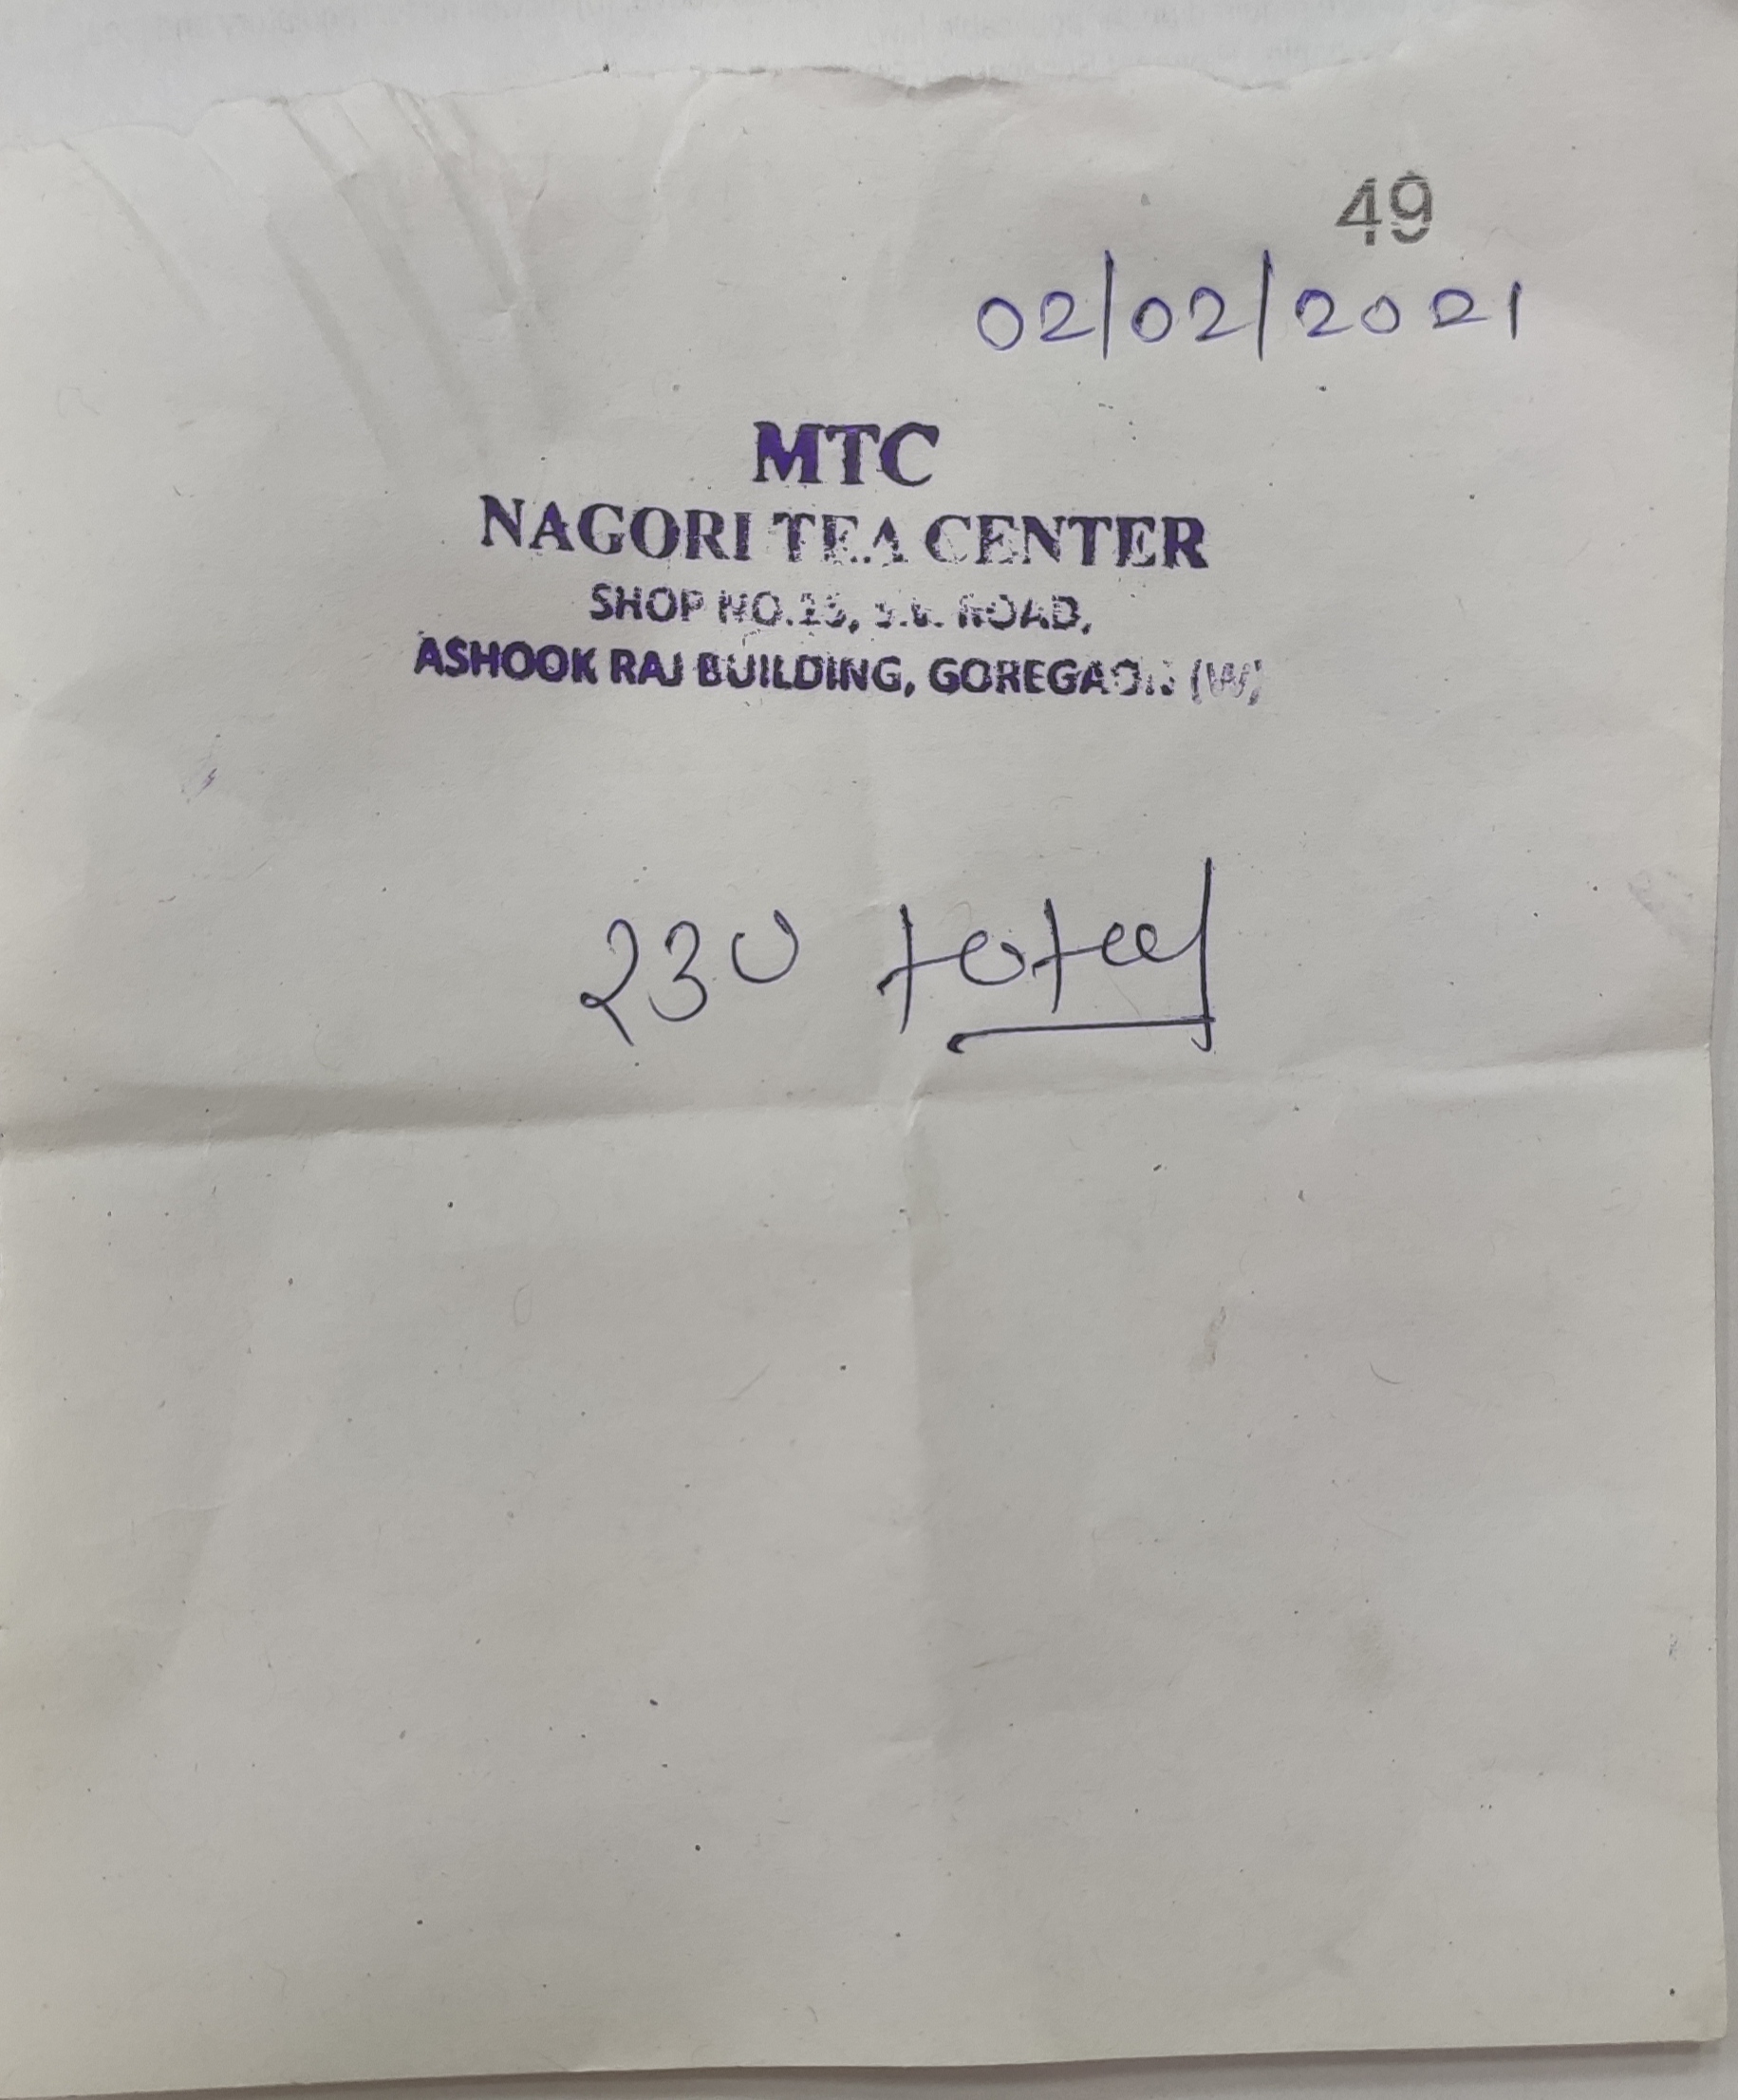 49
02/02/2021
MTC
NAGORI TEA CENTER
SHOP NO. ROAD,
ASHOOK RAJ BUILDING, GOREGAON (W)
२३० total